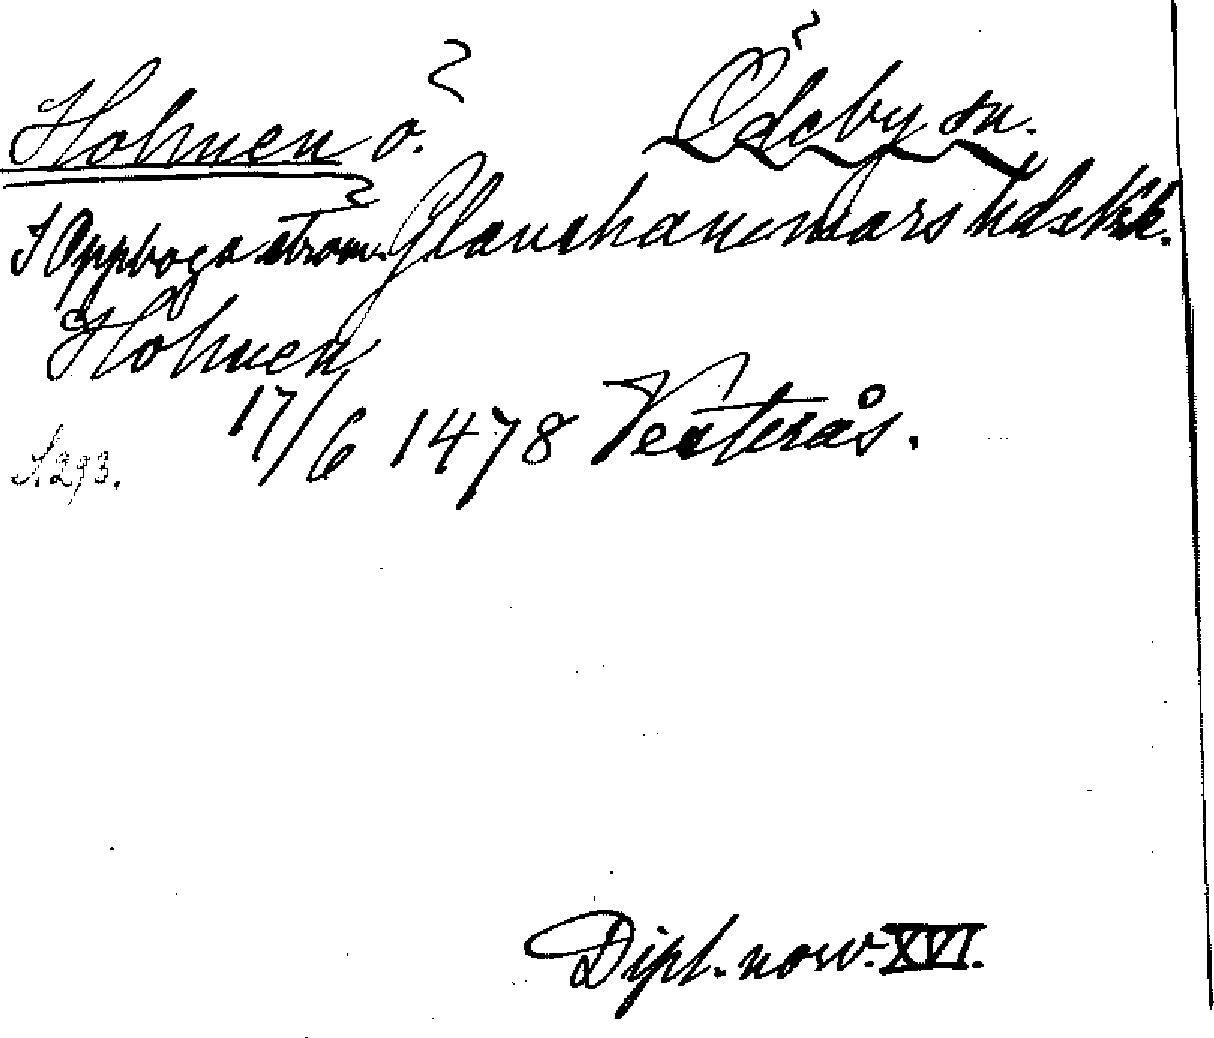 Holmen ö. Ödeby sn.
I Oppboga ström. Glanshammars hd. Närke.
Holmen
17/6 1478 Vesterås.
S. 293.
Dipl. norv. XVI.